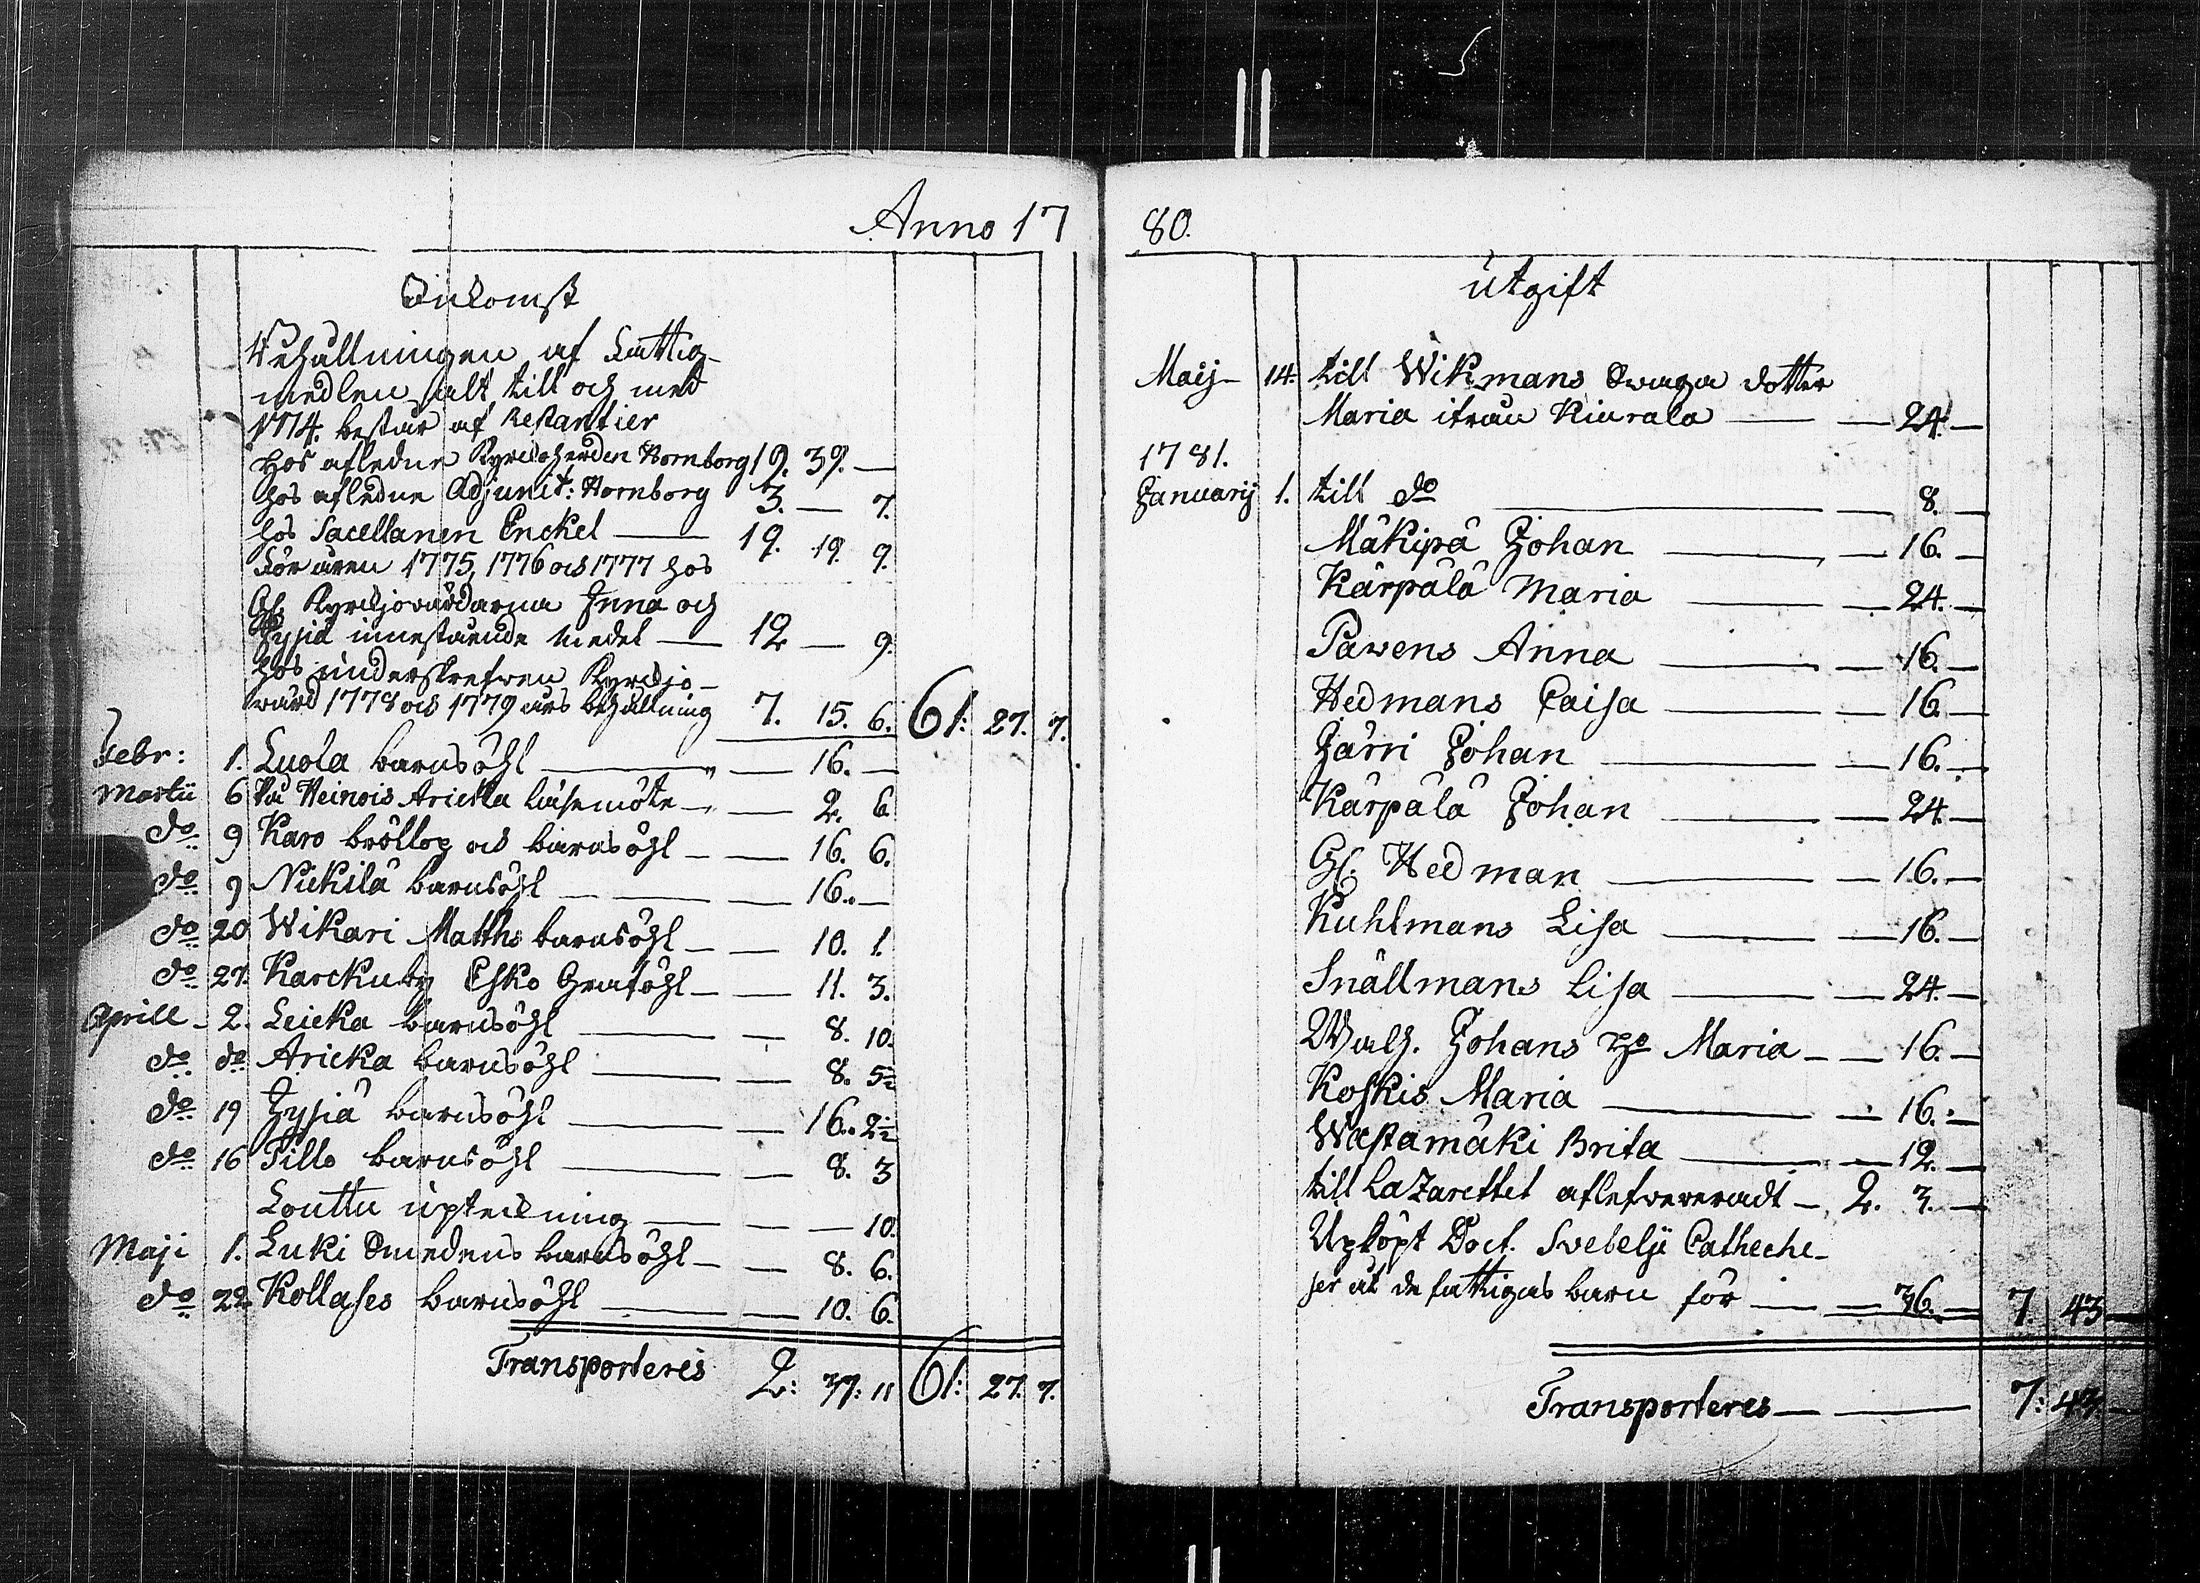 Anno 17
Inkomst
Behållningen af Fattig-
medlen alt till och med
1774. består af Restantier
Hos afledne Kyrckoherden Hornborg 19. 39. —
hos afledne Adjunct: Hornborg 3. — 7.
hos Sacellanen Enckel — 19. 19. 9.
För åren 1775, 1776 och 1777 hos
Gl. Kyrckjovärdarna Inna och
Jysiä innestående medel — 12 — 9.
hos underskrefwen Kyrckjo-
värd 1778 och 1779 års behållning 7. 15. 6. 61: 27. 7.
Febr: 1. Luola barnsöhl — 16. —
Martii 6 På Heinois Arickla läsemöte — 2. 6
do 9 Karo bröllop och barnsöhl — 16. 6.
do 9 Nickilä barnsöhl — 16. —
do 20 Wikari Matths barnsöhl — 10. 1.
do 27. Karckuby Esko Graföhl — 11. 3.
Aprill 2. Leicka barnsöhl — 8. 10.
do do Aricka barnsöhl — 8. 5½
do 19 Jysiä barnsöhl — 16. 2½
do 16 Pillo barnsöhl — 8. 3
Louttu upteckning — 10.
Maji 1. Luki Smedens barnsöhl — 8. 6.
do 22. Kollases barnsöhl — 10. 6.
Transporteres 2: 37: 11 61: 27. 7.
80.
Utgift
Maij 14. till Wikmans Swaga dotter
Maria ifrån Kiurala — 24. —
1781.
Januarij 1. till do — 8. —
Mäkipä Johan — 16. —
Kärpälä Maria — 24. —
Pawens Anna — 16. —
Hedmans Caisa — 16. —
Järri Johan — 16. —
Kärpälä Johan — 24. —
Gl. Hedman — 16. —
Kuhlmans Lisa — 16. —
Snällmans Lisa — 24. —
Walh. Johans Maria — 16. —
Koskis Maria — 16. —
Wästamäki Brita — 12. —
till Lazarettet aflefwereradt — 2. 3. —
Upköpt Doct. Svebelji Catheche-
ser åt de fattigas barn för — 36. — 7. 43 —
Transporteres — 7: 43. —